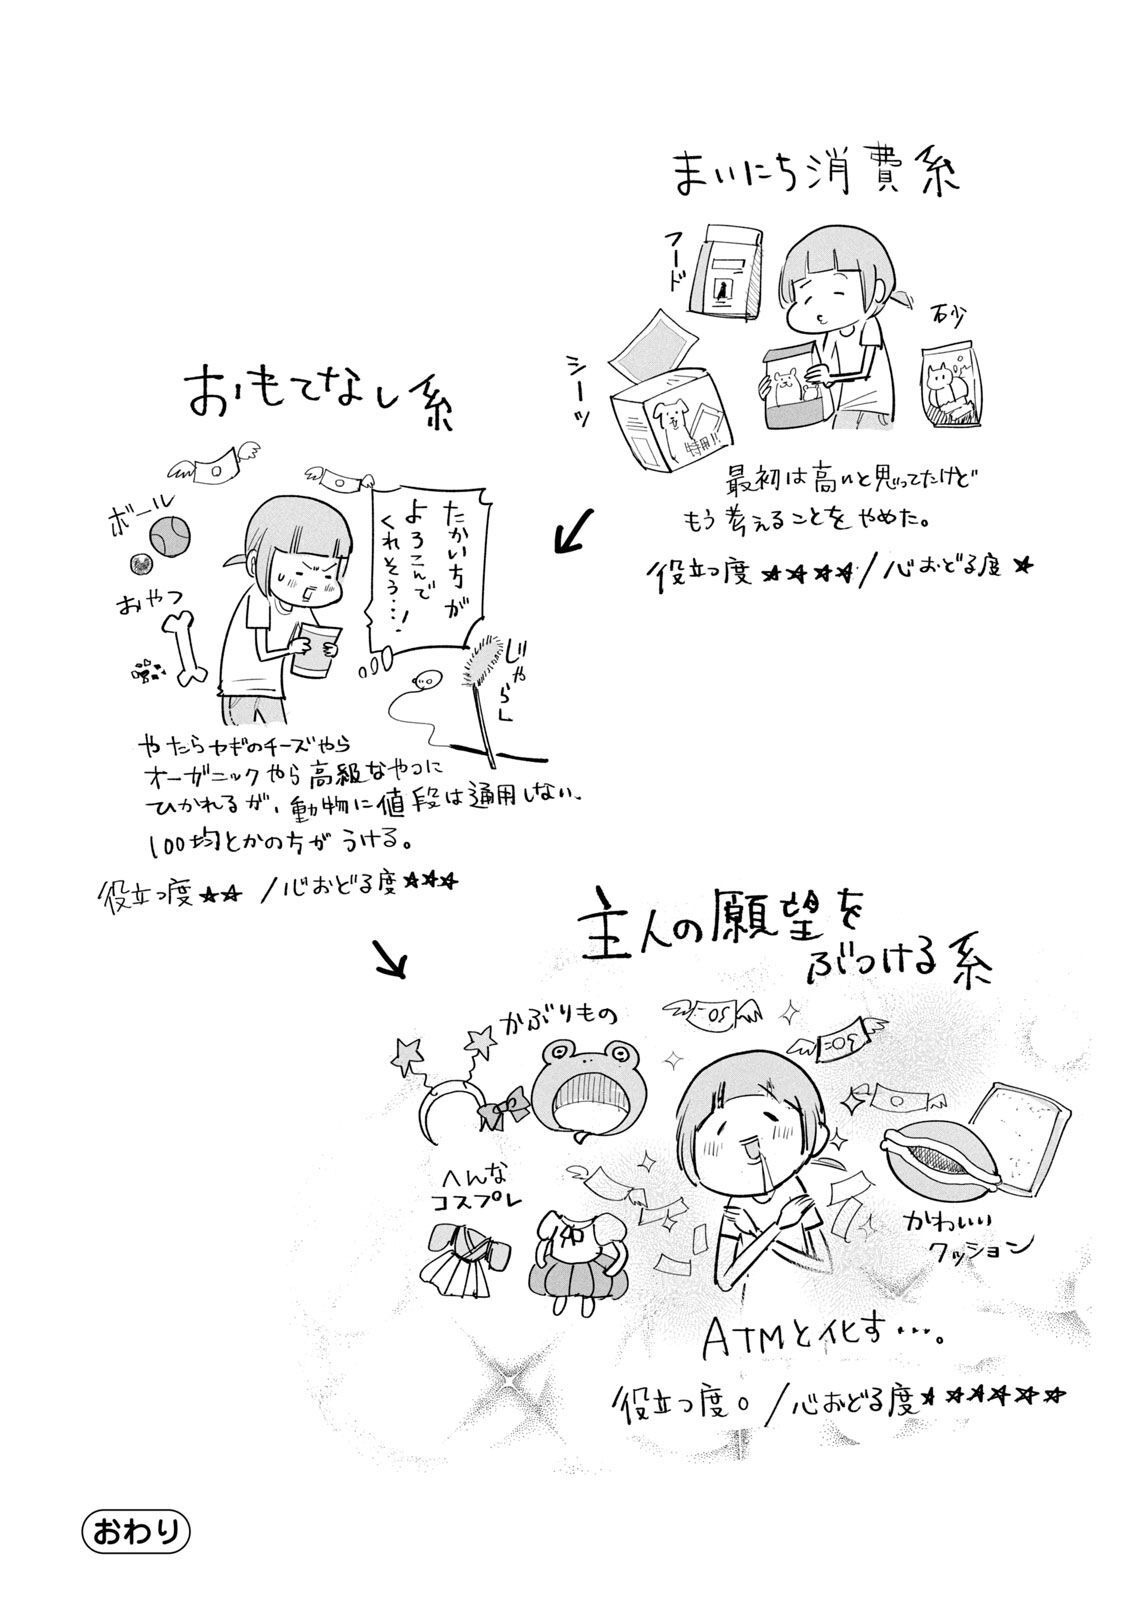 まいにち消費系
フード
シーツ
特用!!
砂
最初は高いと思ってたけど
もう考えることをやめた。
役立つ度★★★★/心おどる度★
おもてなし系
ボール
おやつ
たかい方が
よろこんで
くれそう…!
じゃらし
やたらヤギのチーズやら
オーガニックやら高級なやつに
ひかれるが、動物に値段は通用しない、
100均とかの方がうける。
役立つ度★★/心おどる度★★★
主人の願望を
ぶつける系
かぶりもの
へんな
コスプレ
かわいい
クッション
ATMと化す…。
役立つ度0/心おどる度★★★★★★
おわり